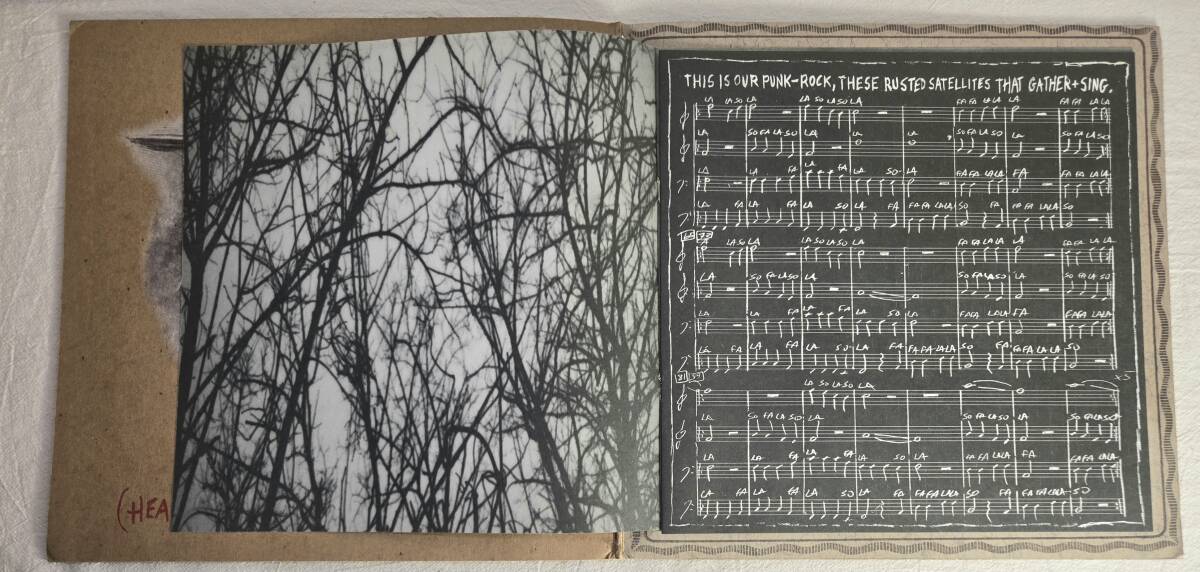 THIS IS OUR PUNK-ROCK, THESE RUSTED SATELLITES THAT GATHER+SING.
LA LA SO LA LA SO LA SO LA FA FA LA LA LA FA FA LA LA
LA SO FA LA SO LA LA LA SO FA LA SO LA SO FA LA SO
LA LA FA LA FA LA SO LA FA FA LA LA FA FA FA LA LA
LA FA LA FA LA SO LA FA FA FA LA LA SO FA FA FA LA LA SO
LA SO LA LA SO LA SO LA FA FA LA LA LA FA FA LA LA
LA SO FA LA SO LA SO FA LA SO LA SO FA LA SO
LA LA FA LA FA LA SO LA FA FA LA LA FA FA FA LA LA
LA FA LA FA LA SO LA FA FA FA LA LA SO FA FA FA LA LA SO
X5
LA SO LA SO LA
LA SO FA LA SO LA SO FA LA SO LA SO FA LA SO
LA LA FA LA FA LA SO LA FA FA LA LA FA FA FA LA LA
LA FA LA FA LA SO LA FA FA FA LA LA SO FA FA FA LA LA SO
(HEA